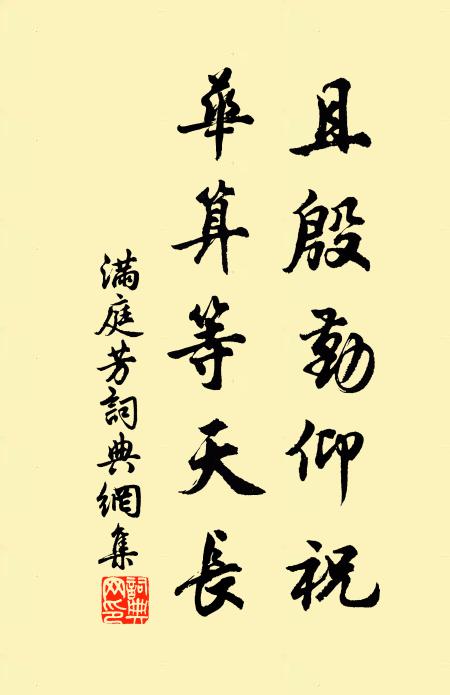 且殷勤仰祝
華算等天長
滿庭芳詞典網集
詞典網印